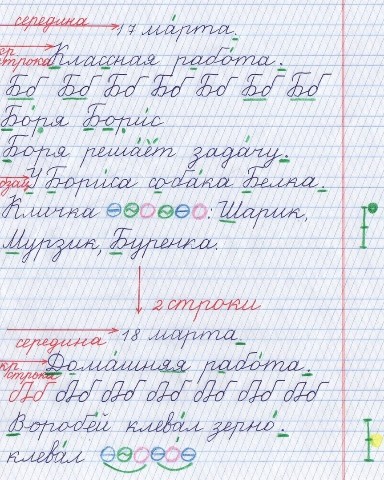 середина 17 марта.
кр строка Классная работа.
Бб Бб Бб Бб Бб Бб Бб
Боря Борис
Боря решает задачу.
абзац У Бориса собака Белка.
Кличка : Шарик,
Мурзик, Буренка.
2 строки
середина 18 марта.
кр строка Домашняя работа.
Воробей клевал зерно.
клевал